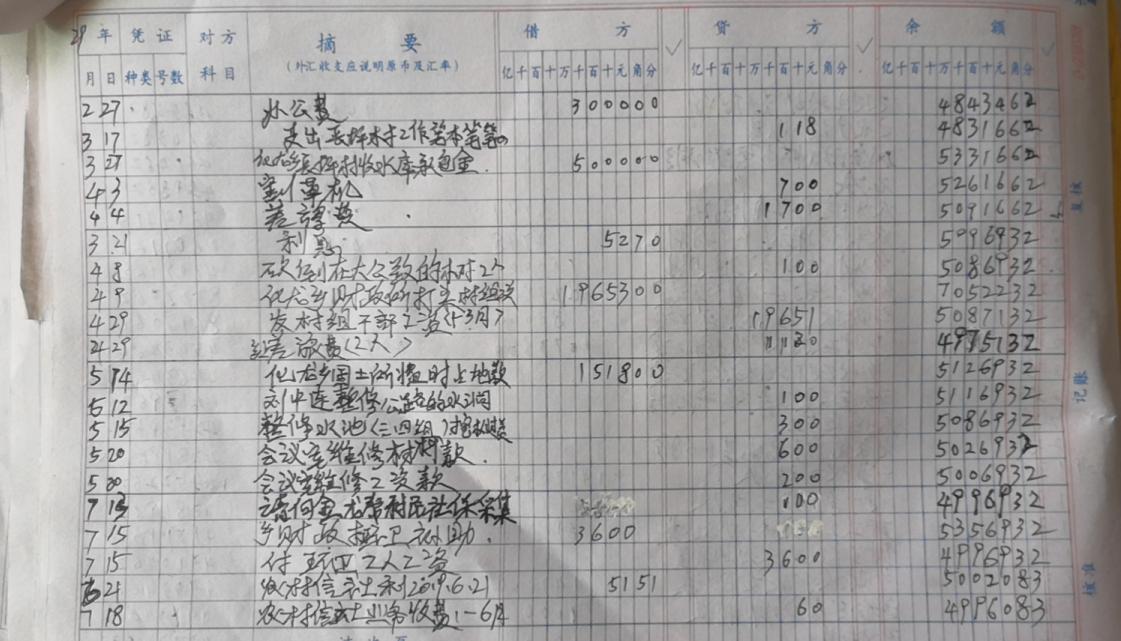 29 年 凭 证 对 方 摘 要 借 方 贷 方 余 额
月 日 种类 号数 科 目 (外汇收支应说明原币及汇率) 亿千百十万千百十元角分 亿千百十万千百十元角分 亿千百十万千百十元角分
2 27 办公费 300000 4843462
3 17 支出 村工作 本等等 118 4831662
3 27 村收水库承包金 500000 5331662
4 3 计算机 700 5261662
4 4 差旅费 1700 5091662
3 21 利息 5270 5096932
4 8 砍倒在大公路的树2个 100 5086932
4 9 化龙乡财政所打 村组 1965300 7052232
4 29 发村组干部工资(1-3月) 19651 5087132
4 29 差旅费(2人) 1120 4975132
5 14 化龙乡国土所 临时占地款 151800 5126932
5 12 整修公路的水沟 100 5116932
5 15 整修水池(三四组) 300 5086932
5 20 会议室维修材料款 600 5026932
5 会议室维修工资款 200 5006932
7 13 村民社保采集 100 4996932
7 15 乡财政 卫补助 3600 5356932
7 15 付 工人工资 3600 4996932
6 21 农村信用社利2019.6.21 5151 5002083
7 18 农村信用社业务收费1-6月 60 4996083
复 核
记 账
核 准